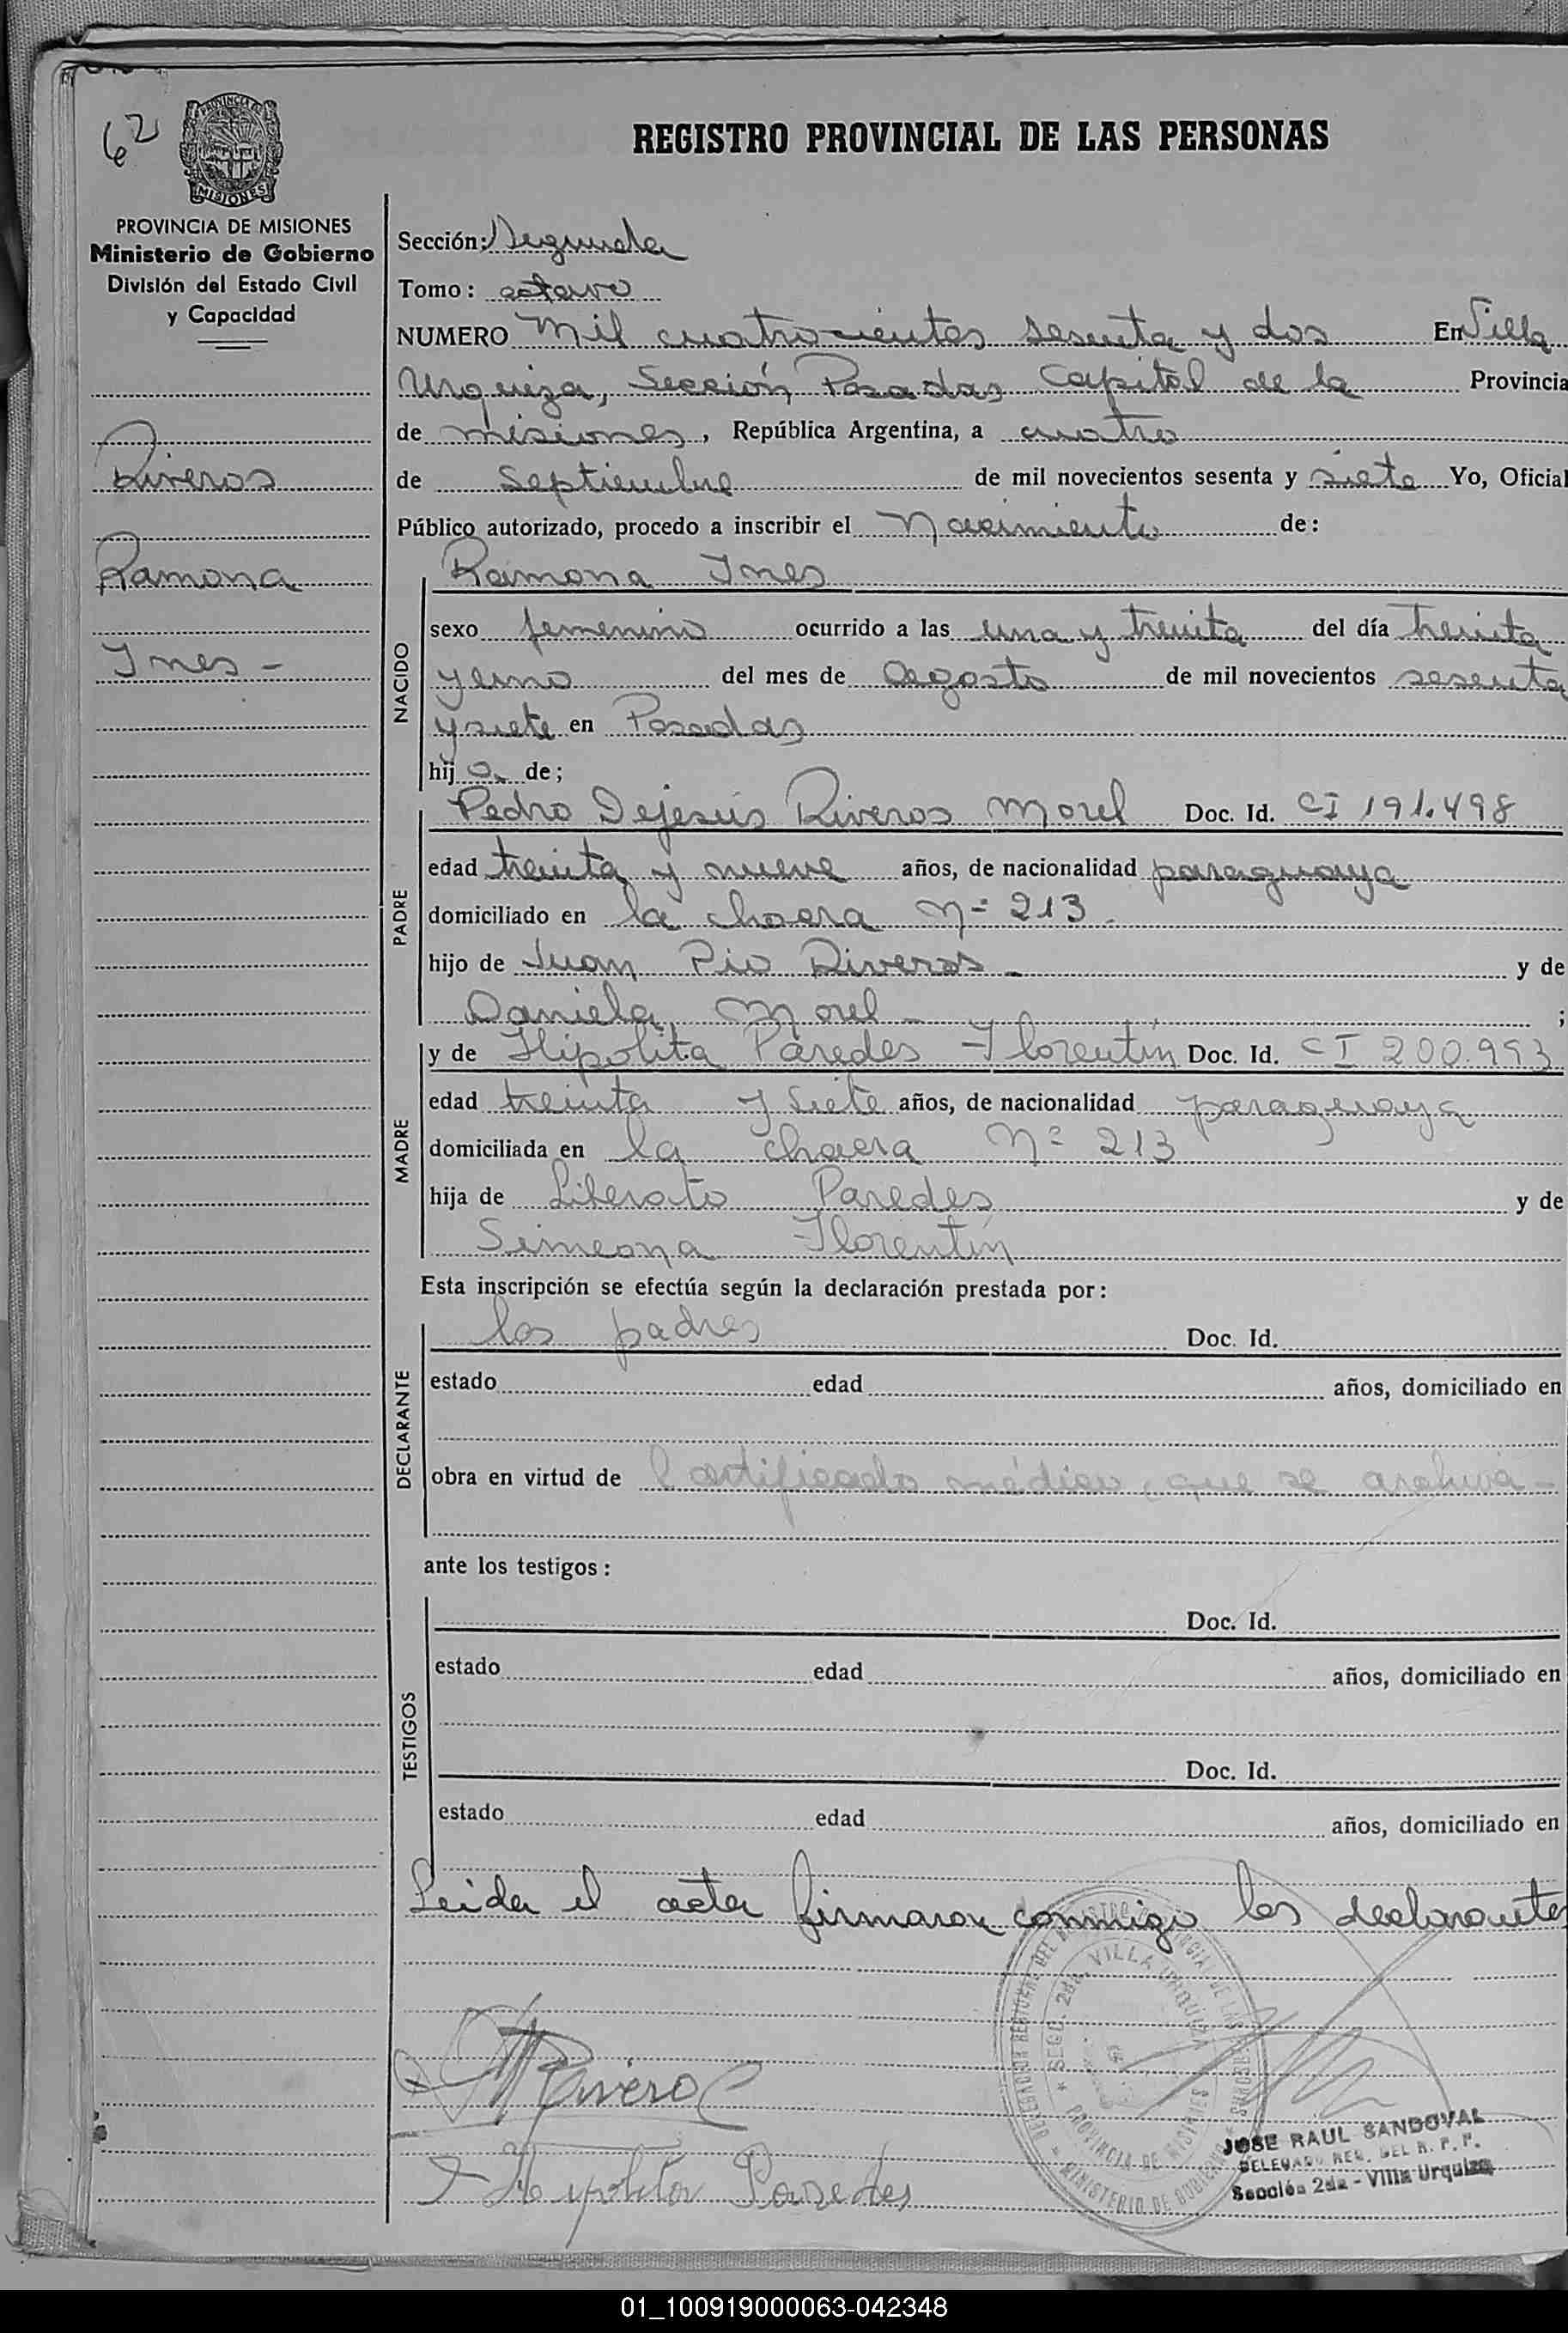 62
PROVINCIA DE MISIONES
REGISTRO PROVINCIAL DE LAS PERSONAS
PROVINCIA DE MISIONES
Ministerio de Gobierno
División del Estado Civil
y Capacidad
Riveros
Ramona
Ines -
Sección: Segunda
Tomo: octavo
NUMERO Mil cuatrocientos sesenta y dos En Villa
Urquiza, Sección Posadas Capital de la Provincia
de misiones, República Argentina, a cuatro
de Septiembre de mil novecientos sesenta y siete Yo, Oficial
Público autorizado, procedo a inscribir el Nacimiento de:
Ramona Ines
NACIDO
sexo femenino ocurrido a las una y treinta del día treinta
y uno del mes de Agosto de mil novecientos sesenta
y siete en Posadas
hija de;
PADRE
Pedro Dejesús Riveros Morel Doc. Id. CI 191.498
edad treinta y nueve años, de nacionalidad paraguaya
domiciliado en la chacra Nº 213.
hijo de Juan Pio Riveros - y de
Daniela Morel - ;
MADRE
y de Hipolita Paredes Florentín Doc. Id. CI 200.993
edad treinta y siete años, de nacionalidad paraguaya
domiciliada en la chacra Nº 213
hija de Liberato Paredes y de
Simeona Florentín
Esta inscripción se efectúa según la declaración prestada por:
DECLARANTE
los padres Doc. Id.
estado edad años, domiciliado en
obra en virtud de Certificado médico, que se archiva -
ante los testigos:
TESTIGOS
Doc. Id.
estado edad años, domiciliado en
Doc. Id.
estado edad años, domiciliado en
Leida el acta firmaron conmigo los declarantes
Riveros
Hipolita Paredes
SECC. 2da. VILLA URQUIZA
PROVINCIA DE MISIONES
MINISTERIO DE GOBIERNO
JOSE RAUL SANDOVAL
DELEGADO REG. DEL R. P. P.
Sección 2da - Villa Urquiza
01_100919000063-042348